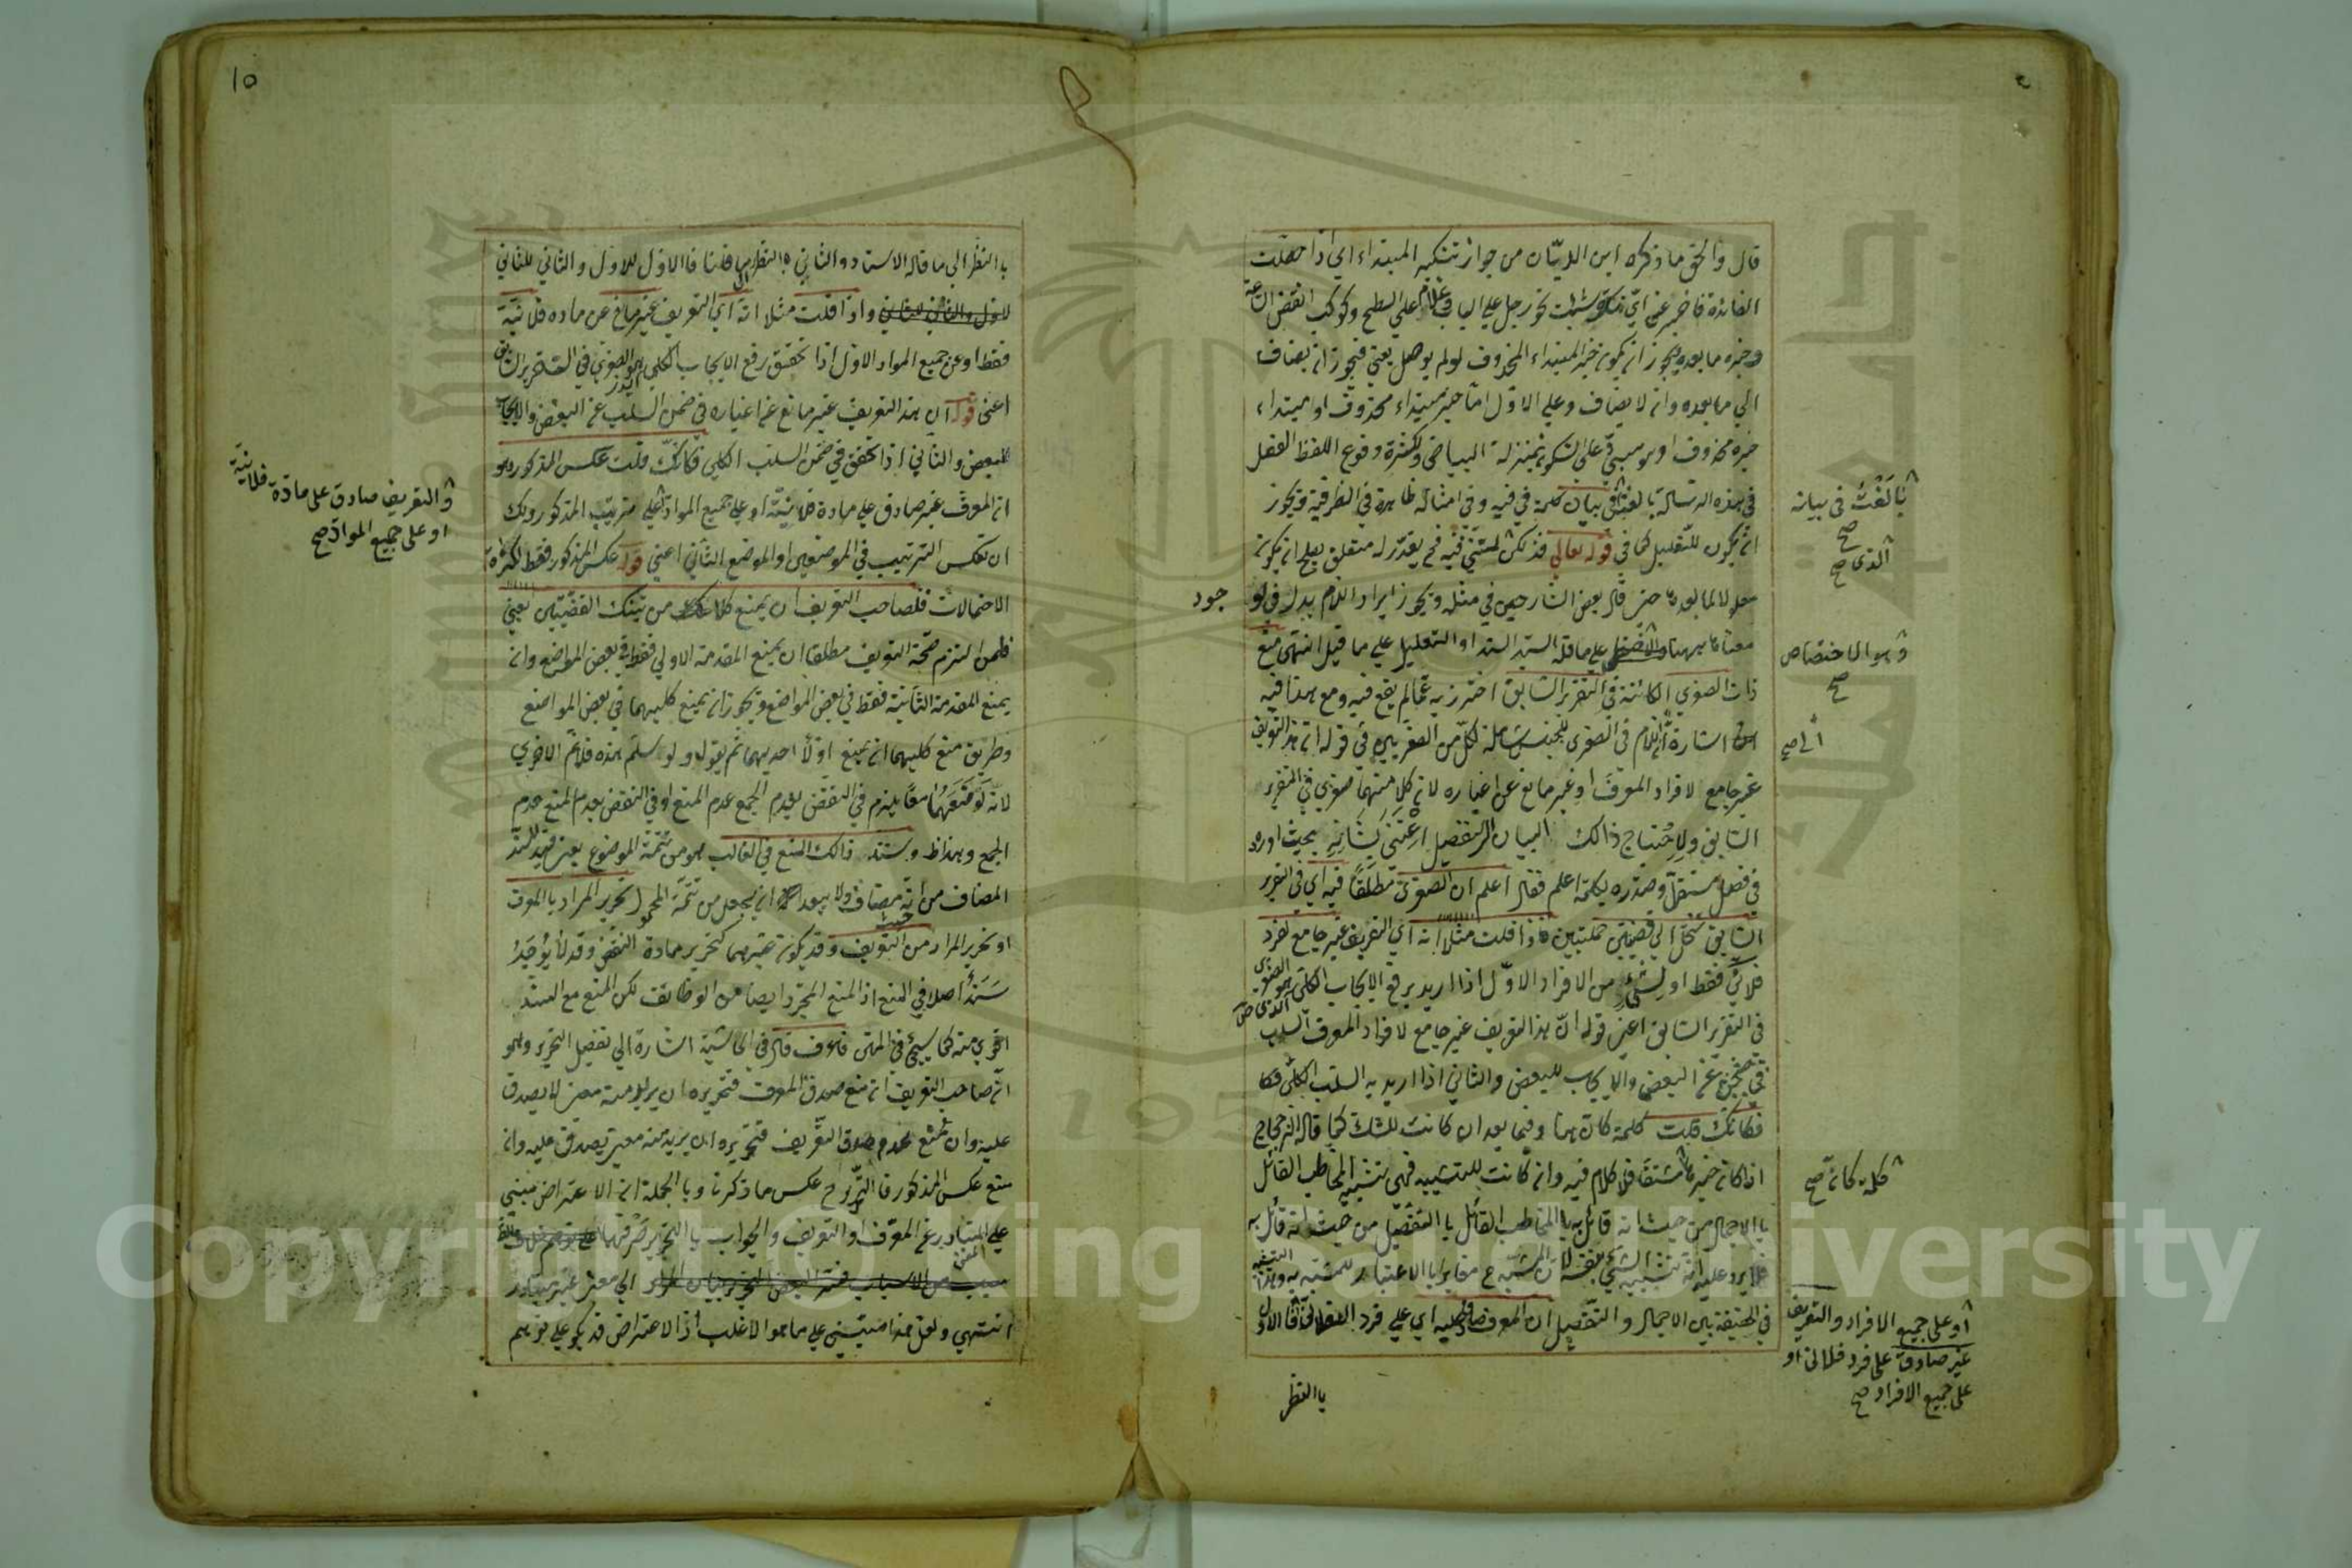 قال والحق ما ذكره ابن الدهان من جواز تنكير المبتداء اي اذا حصلت
الفائدة فاخبر عن اي نكرة شئت نحو رجل على الباب وغلام على السطح وكوكب انقض الساعة
وخبره ما بعده ويجوز ان يكون خبر المبتداء المحذوف لو لم يوصل يعني فيجوز ان يضاف
الى ما بعده وان لا يضاف وعلى الاول اما خبر مبتداء محذوف او مبتداء
خبره محذوف او مبني على السكون بمنزلة البياض ولكثرة وقوع اللفظ الفصل
في هذه الرسالة بالغت في بيان كلمة في فيه وفي امثاله ظاهرة في الظرفية ويجوز
ان يكون للتعليل كما في قوله تعالى فذلكن لمتنني فيه فح يقدر له متعلق يصلح ان يكون
معلولا لما بعدها حتى قال بعض الشارحين في مثله ويجوز ايراد اللام بدل في لو
معناها ههنا على ما قاله السيد السند او التعليل على ما قيل انتهى منع
ذات الصغرى الكائنة في التقرير السابق احترز به عما لم يقع فيه ومع هذا فيه
اشارة ان اللام في الصغرى للجنس شاملة لكل من الصغريين في قوله ان هذا التعريف
غير جامع لافراد المعرف او غير مانع عن اغياره لان كلا منهما صغرى في التقرير
السابق ولاحتياج ذالك البيان الى التفصيل اعتنى بشانه بحيث اورده
في فصل مستقل وصدره بكلمة اعلم فقال اعلم ان الصغرى مطلقا فيه اي في التقرير
السابق تنحل الى قضيتين حمليتين فاذا قلت مثلا انه اي التعريف غير جامع لفرد
فلاني فقط او لشيء من الافراد الاول اذا اريد برفع الايجاب الكلي هو الصغرى
في التقرير السابق اعني قوله ان هذا التعريف غير جامع لافراد المعرف السلب
في ضمن عن البعض والايجاب للبعض والثاني اذا اريد به السلب الكلي فكا
فكانك قلت كلمة كان هنا وفيما بعد ان كانت للشك كما قاله الزجاج
اذا كان خبرها مشتقا فلا كلام فيه وان كانت للتشبيه فهي تشبيه المخاطب القائل
با الاجمال من حيث انه قائل به با المخاطب القائل با التفصيل من حيث انه قائل به
فلا يرد عليه انه تشبيه الشيء بنفسه لان المشبه ح مغاير با الاعتبار للمشبه به وهذا التشبيه
في الحقيقة بين الاجمال والتفصيل ان المعرف صادق عليه اي على فرد الفلاني فا الاول
با النظر
بالغت في بيانه صح
الذي صح
جود
وهو الاختصاص صح
الى صح
الذي صح
كلمة كان صح
او على جميع الافراد والتعريف
غير صادق على فرد فلاني او
على جميع الافراد صح
١٥
با النظر الى ما قاله الاستاد والثاني با النظر الى ما قلنا فا الاول للاول والثاني للثاني
واذا قلت مثلا انه اي التعريف غير مانع عن مادة فلانية
فقط او عن جميع المواد الاول اذا تحقق رفع الايجاب الكلي هو الصغرى في التقرير السابق
اعني قوله ان هذا التعريف غير مانع عن اغياره في ضمن السلب عن البعض والايجاب
للبعض والثاني اذا تحقق في ضمن السلب الكلي فكانك قلت عكس المذكور وهو
ان المعرف غير صادق على مادة فلانية او على جميع المواد على ترتيب المذكور ولك
ان تعكس الترتيب في الموضعين او الموضع الثاني اعني قوله عكس المذكور فقط لكثرة
الاحتمالات فلصاحب التعريف ان يمنع كلا من تينك القضيتين يعني
فلمن التزم صحة التعريف مطلقا ان يمنع المقدمة الاولى فقط في بعض المواضع وان
يمنع المقدمة الثانية فقط في بعض المواضع ويجوز ان يمنع كليهما في بعض المواضع
وطريق منع كليهما ان يمنع اولا احديهما ثم يقول ولو سلم هذه فلا نم الاخرى
لانه لو منعهما معا يلزم في النقض بعدم الجمع عدم المنع او في النقض بعدم المنع عدم
الجمع وهذا ظ وسند ذالك المنع في الغالب هو من تتمة الموضوع يعني قيد السند
المضاف من انه مضاف ولا يبعد ان يجعل من تتمة المحمول تحرير المراد با المعرف
او تحرير المراد من التعريف وقد يكون غيرهما كتحرير مادة النقض وقد لا يؤخذ
سندا اصلا في المنع اذ المنع المجرد ايضا من الوظائف لكن المنع مع السند
اقوى منه كما سيجئ في المتن فاعرف قال في الحاشية اشارة الى تفصيل التحرير وهو
ان صاحب التعريف ان منع صدق المعرف فتحريره ان يريد منه معنى لا يصدق
عليه وان منع عدم صدق التعريف فتحريره ان يريد منه معنى يصدق عليه وان
منع عكس المذكور فا التحرير ح عكس ما ذكرنا وبا الجملة ان الاعتراض مبني
على المتبادر عن المعرف او التعريف والجواب با التحرير صرفهما
الى معنى غير متبادر
انتهى ولعل هذا مبني على ما هو الاغلب اذ الاعتراض قد يكون على توهم
والتعريف صادق على مادة فلانية
او على جميع المواد صح
Copyright © King Saud University